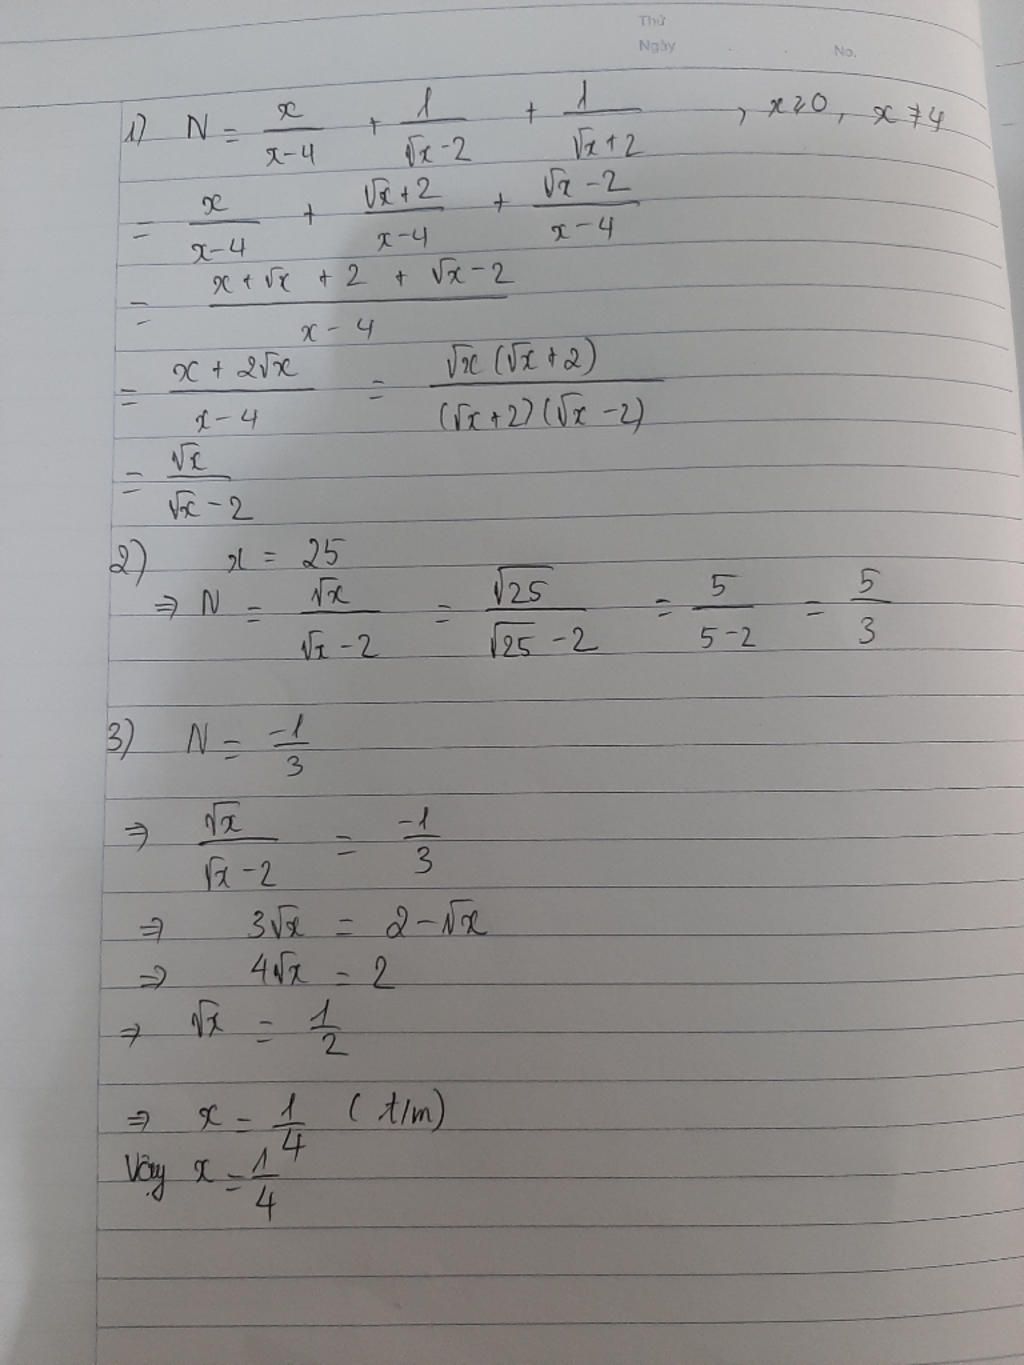 Thứ
Ngày . . No.
1) N = x/(x-4) + 1/(√x-2) + 1/(√x+2) , x≥0, x≠4
= x/(x-4) + (√x+2)/(x-4) + (√x-2)/(x-4)
= (x+√x+2+√x-2)/(x-4)
= (x+2√x)/(x-4) = (√x(√x+2))/((√x+2)(√x-2))
= √x/(√x-2)
2) x = 25
⇒ N = √x/(√x-2) = √25/(√25-2) = 5/(5-2) = 5/3
3) N = -1/3
⇒ √x/(√x-2) = -1/3
⇒ 3√x = 2-√x
⇒ 4√x = 2
⇒ √x = 1/2
⇒ x = 1/4 (t/m)
Vậy x = 1/4